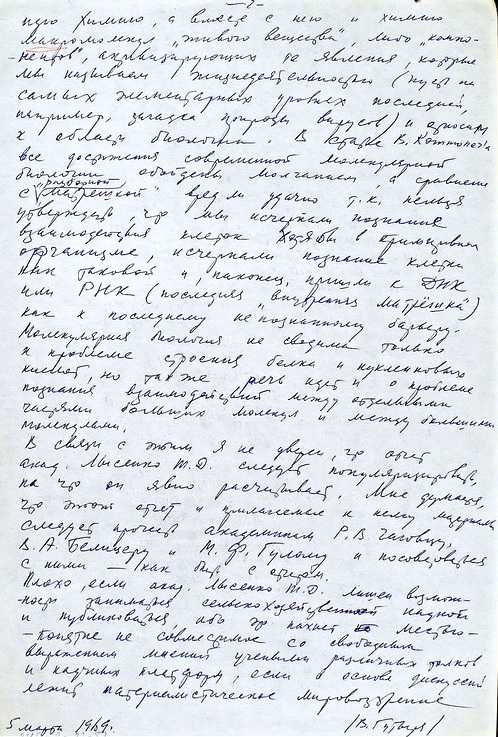 — 2 —
ную химию, а вместе с нею и химию
макромолекул „живого вещества", либо „компо-
-нентов", активизирующих те явления, которые
мы называем жизнедеятельностью (пусть на
самых элементарных уровнях последней,
например, загадка природы вирусов) и относим
к области биологии. В статье В.
все достижения современной молекулярной
биологии обойдены молчанием, а сравнение
с „разборной матрёшкой" вряд ли удачно т.к. нельзя
утверждать, что мы исчерпали познания
взаимодействия клеток хотя бы в примитивном
организме, исчерпали познание клетки
как таковой и, наконец, пришли к ДНК
или РНК (последняя „внутренняя матрёшка")
как к последнему непознанному барьеру.
Молекулярная биология не сводима только
к проблеме строения белка и нуклеиновых
кислот, но также речь идет и о проблеме
познания взаимодействий между отдельными
частями больших молекул и между большими
молекулами.
В связи с этим я не уверен, что отчет
акад. Лысенко Т.Д. следует популяризировать,
на что он явно расчитывает. Мне думается,
что этот отчет и прилагаемые к нему материалы
следует прочесть академикам Р.В. Чаговцу,
В.А. Белицеру и М.Ф. Гулому и посоветоваться
с ними — как быть с отчетом.
Плохо, если акад. Лысенко Т.Д. лишен возмож-
-ности заниматься сельскохозяйственной наукой
и публиковаться, ибо это пахнет местью —
— понятие не совместимое со свободным
выражением мнений учеными различных толков
и научных платформ, если в основе дискуссий
лежит материалистическое мировоззрение
5 марта 1969г. /В. Гутыря/